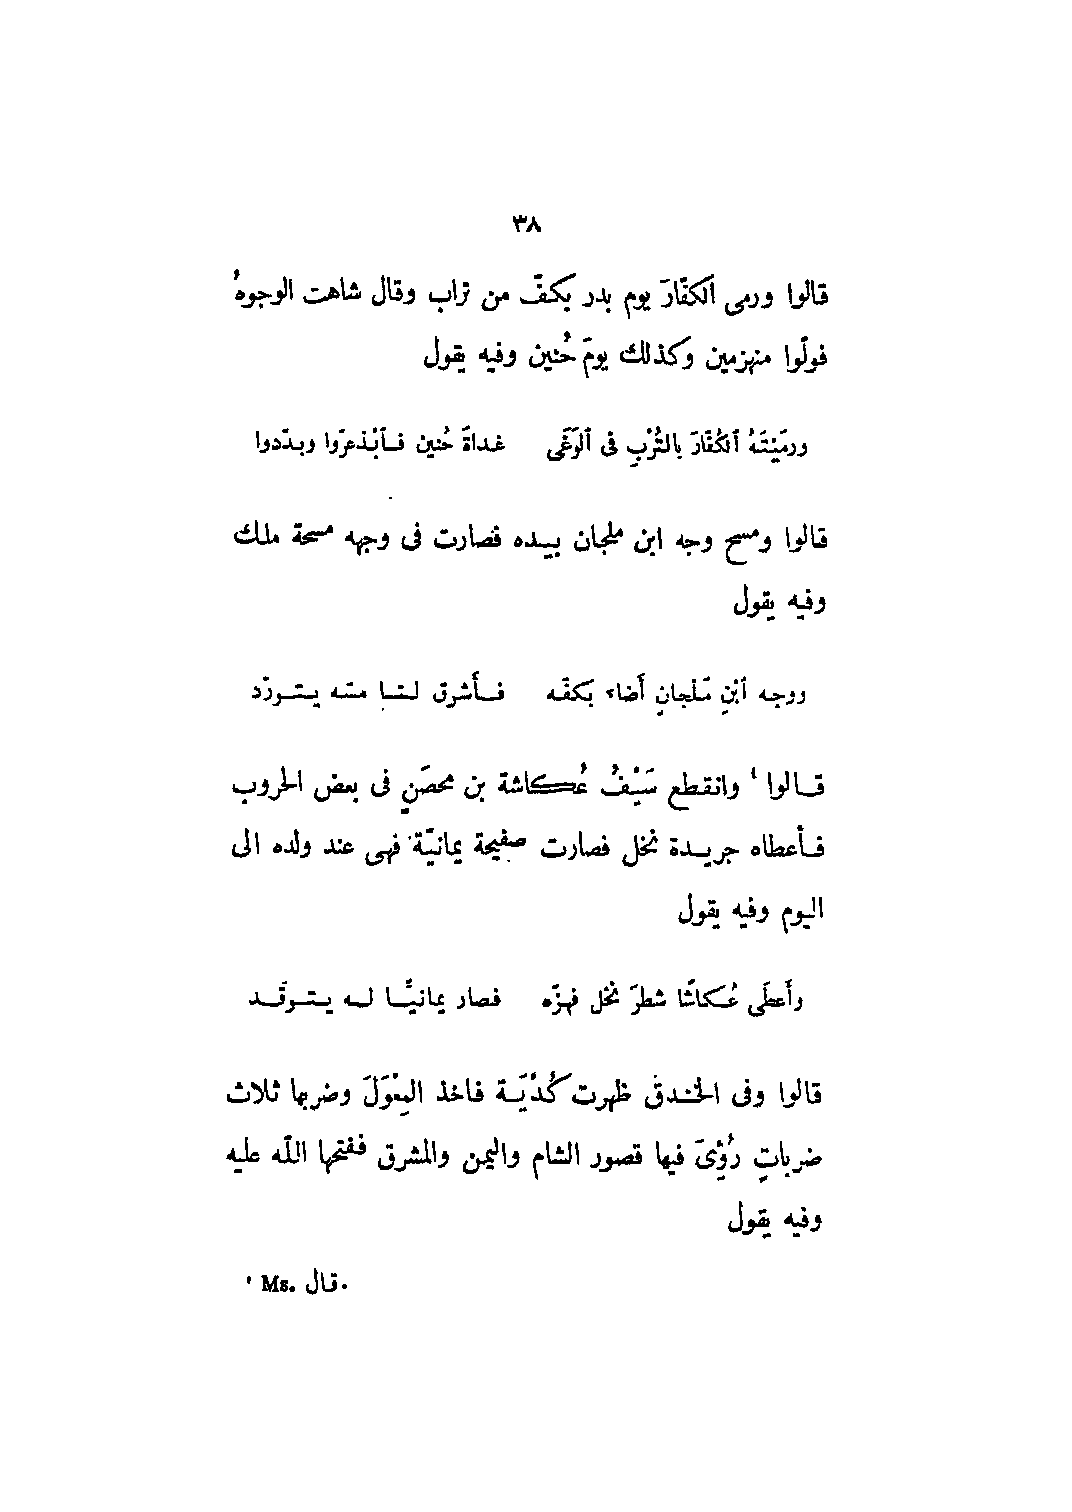 ٣٨
قالوا ورمى ٱلكفّارَ يوم بدر بكفّ من تراب وقال شاهت الوجوهُ
فولّوا منهزمين وكذلك يومَ حُنين وفيه يقول
ورمَيْتَهُ ٱلكُفّارَ بالتُرْبِ فى ٱلوَغَى غداةَ حُنين فٱبْذعرّوا وبدّدوا
قالوا ومسح وجه ابن ملجان بيده فصارت فى وجهه مسحة ملك
وفيه يقول
ووجه ٱبْنِ مَلجانٍ أضاء بكفّه فأشرق لمّا مسّه يتورّد
قالوا ¹ وانقطع سَيْفُ عُكاشة بن محصَنٍ فى بعض الحروب
فأعطاه جريدة نخل فصارت صفيحة يمانيّة فهى عند ولده الى
اليوم وفيه يقول
وأَعطَى عُكاشًا شطرَ نخل فهزّه فصار يمانيًّا له يتوقَّد
قالوا وفى الخندق ظهرت كُدْيَة فاخذ المِعْوَلَ وضربها ثلاث
ضرباتٍ رُؤِىَ فيها قصور الشام واليمن والمشرق ففتحها اللّه عليه
وفيه يقول
¹ Ms. قال.